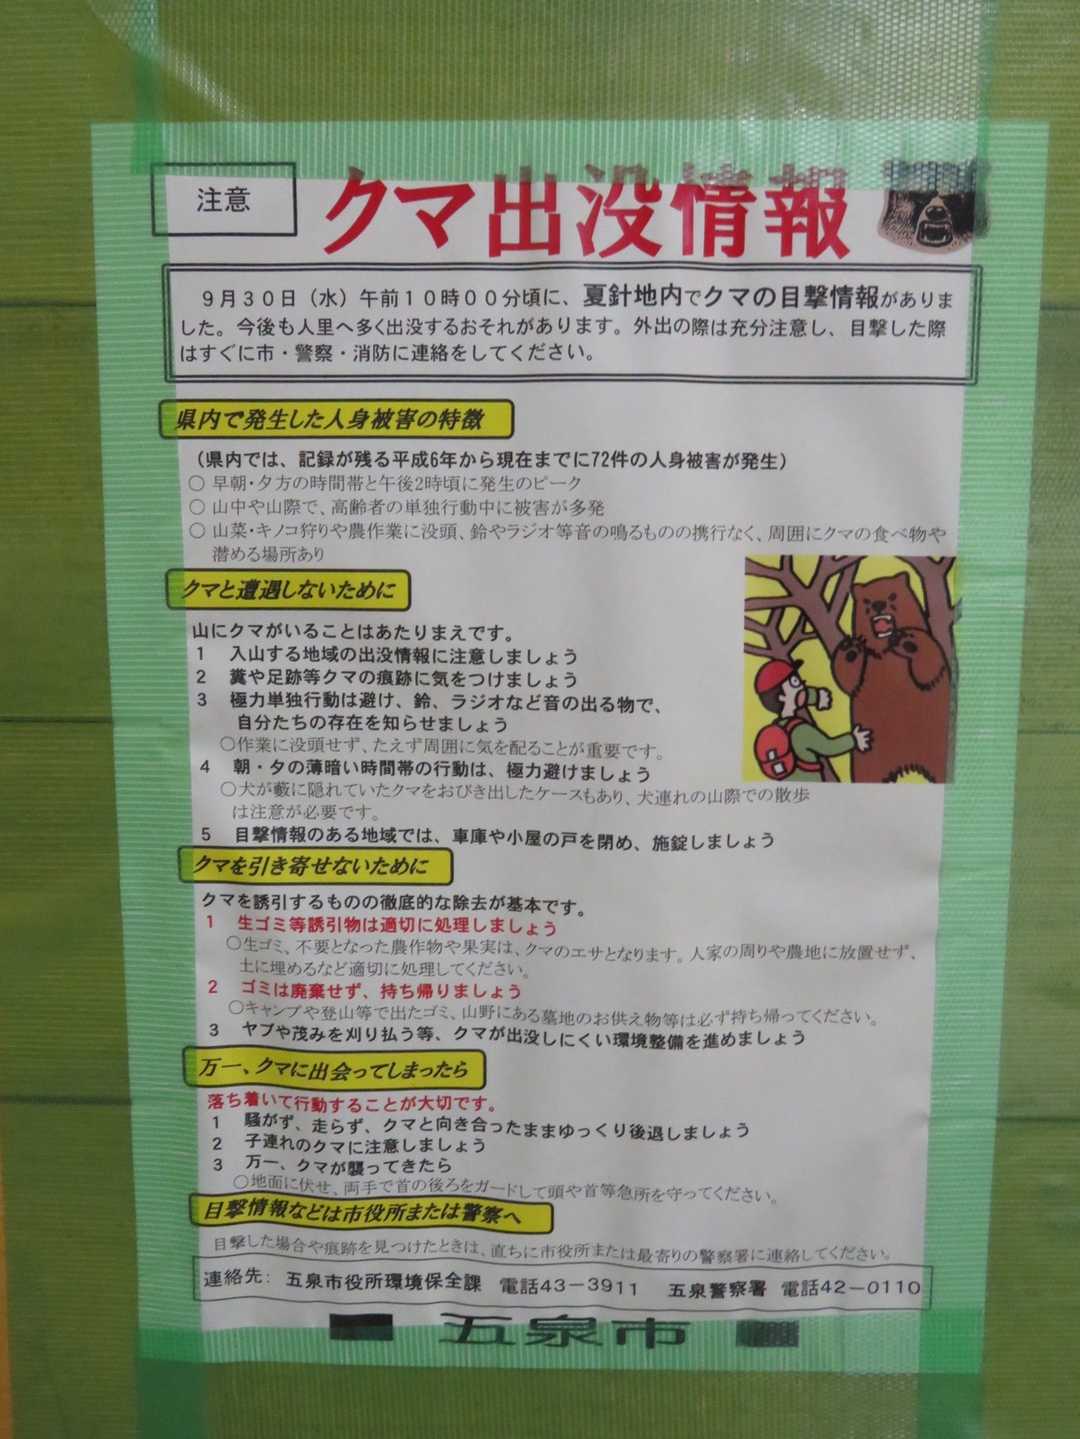 注意
クマ出没情報
９月３０日（水）午前１０時００分頃に、夏針地内でクマの目撃情報がありま
した。今後も人里へ多く出没するおそれがあります。外出の際は充分注意し、目撃した際
はすぐに市・警察・消防に連絡をしてください。
県内で発生した人身被害の特徴
（県内では、記録が残る平成6年から現在までに72件の人身被害が発生）
○ 早朝・夕方の時間帯と午後2時頃に発生のピーク
○ 山中や山際で、高齢者の単独行動中に被害が多発
○ 山菜・キノコ狩りや農作業に没頭、鈴やラジオ等音の鳴るものの携行なく、周囲にクマの食べ物や
潜める場所あり
クマと遭遇しないために
山にクマがいることはあたりまえです。
1 入山する地域の出没情報に注意しましょう
2 糞や足跡等クマの痕跡に気をつけましょう
3 極力単独行動は避け、鈴、ラジオなど音の出る物で、
自分たちの存在を知らせましょう
○作業に没頭せず、たえず周囲に気を配ることが重要です。
4 朝・夕の薄暗い時間帯の行動は、極力避けましょう
○犬が藪に隠れていたクマをおびき出したケースもあり、犬連れの山際での散歩
は注意が必要です。
5 目撃情報のある地域では、車庫や小屋の戸を閉め、施錠しましょう
クマを引き寄せないために
クマを誘引するものの徹底的な除去が基本です。
1 生ゴミ等誘引物は適切に処理しましょう
○生ゴミ、不要となった農作物や果実は、クマのエサとなります。人家の周りや農地に放置せず、
土に埋めるなど適切に処理してください。
2 ゴミは廃棄せず、持ち帰りましょう
○キャンプや登山等で出たゴミ、山野にある墓地のお供え物等は必ず持ち帰ってください。
3 ヤブや茂みを刈り払う等、クマが出没しにくい環境整備を進めましょう
万一、クマに出会ってしまったら
落ち着いて行動することが大切です。
1 騒がず、走らず、クマと向き合ったままゆっくり後退しましょう
2 子連れのクマに注意しましょう
3 万一、クマが襲ってきたら
○地面に伏せ、両手で首の後ろをガードして頭や首等急所を守ってください。
目撃情報などは市役所または警察へ
目撃した場合や痕跡を見つけたときは、直ちに市役所または最寄りの警察署に連絡してください。
連絡先: 五泉市役所環境保全課 電話43－3911 五泉警察署 電話42－0110
五泉市